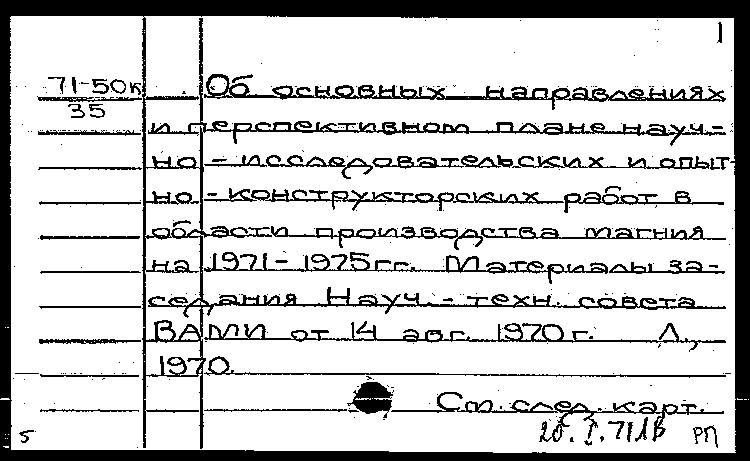 1
71-50к Об основных направлениях
35
и перспективном плане науч-
но-исследовательских и опыт-
но-конструкторских работ в
области производства магния
на 1971-1975гг. Материалы за-
седания Науч.-техн. совета
ВАМИ от 14 авг. 1970г. Л.,
1970.
См. след. карт.
5 РП